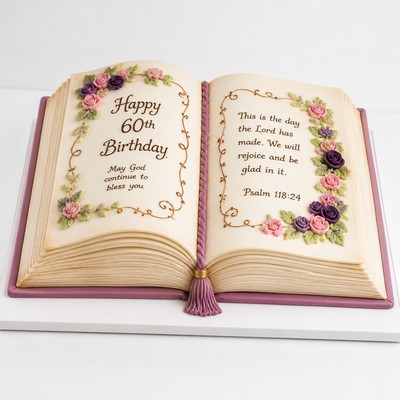 Happy
60th
Birthday
May God
continue to
bless you
This is the day
the Lord has
made. We will
rejoice and be
glad in it.
Psalm 118:24